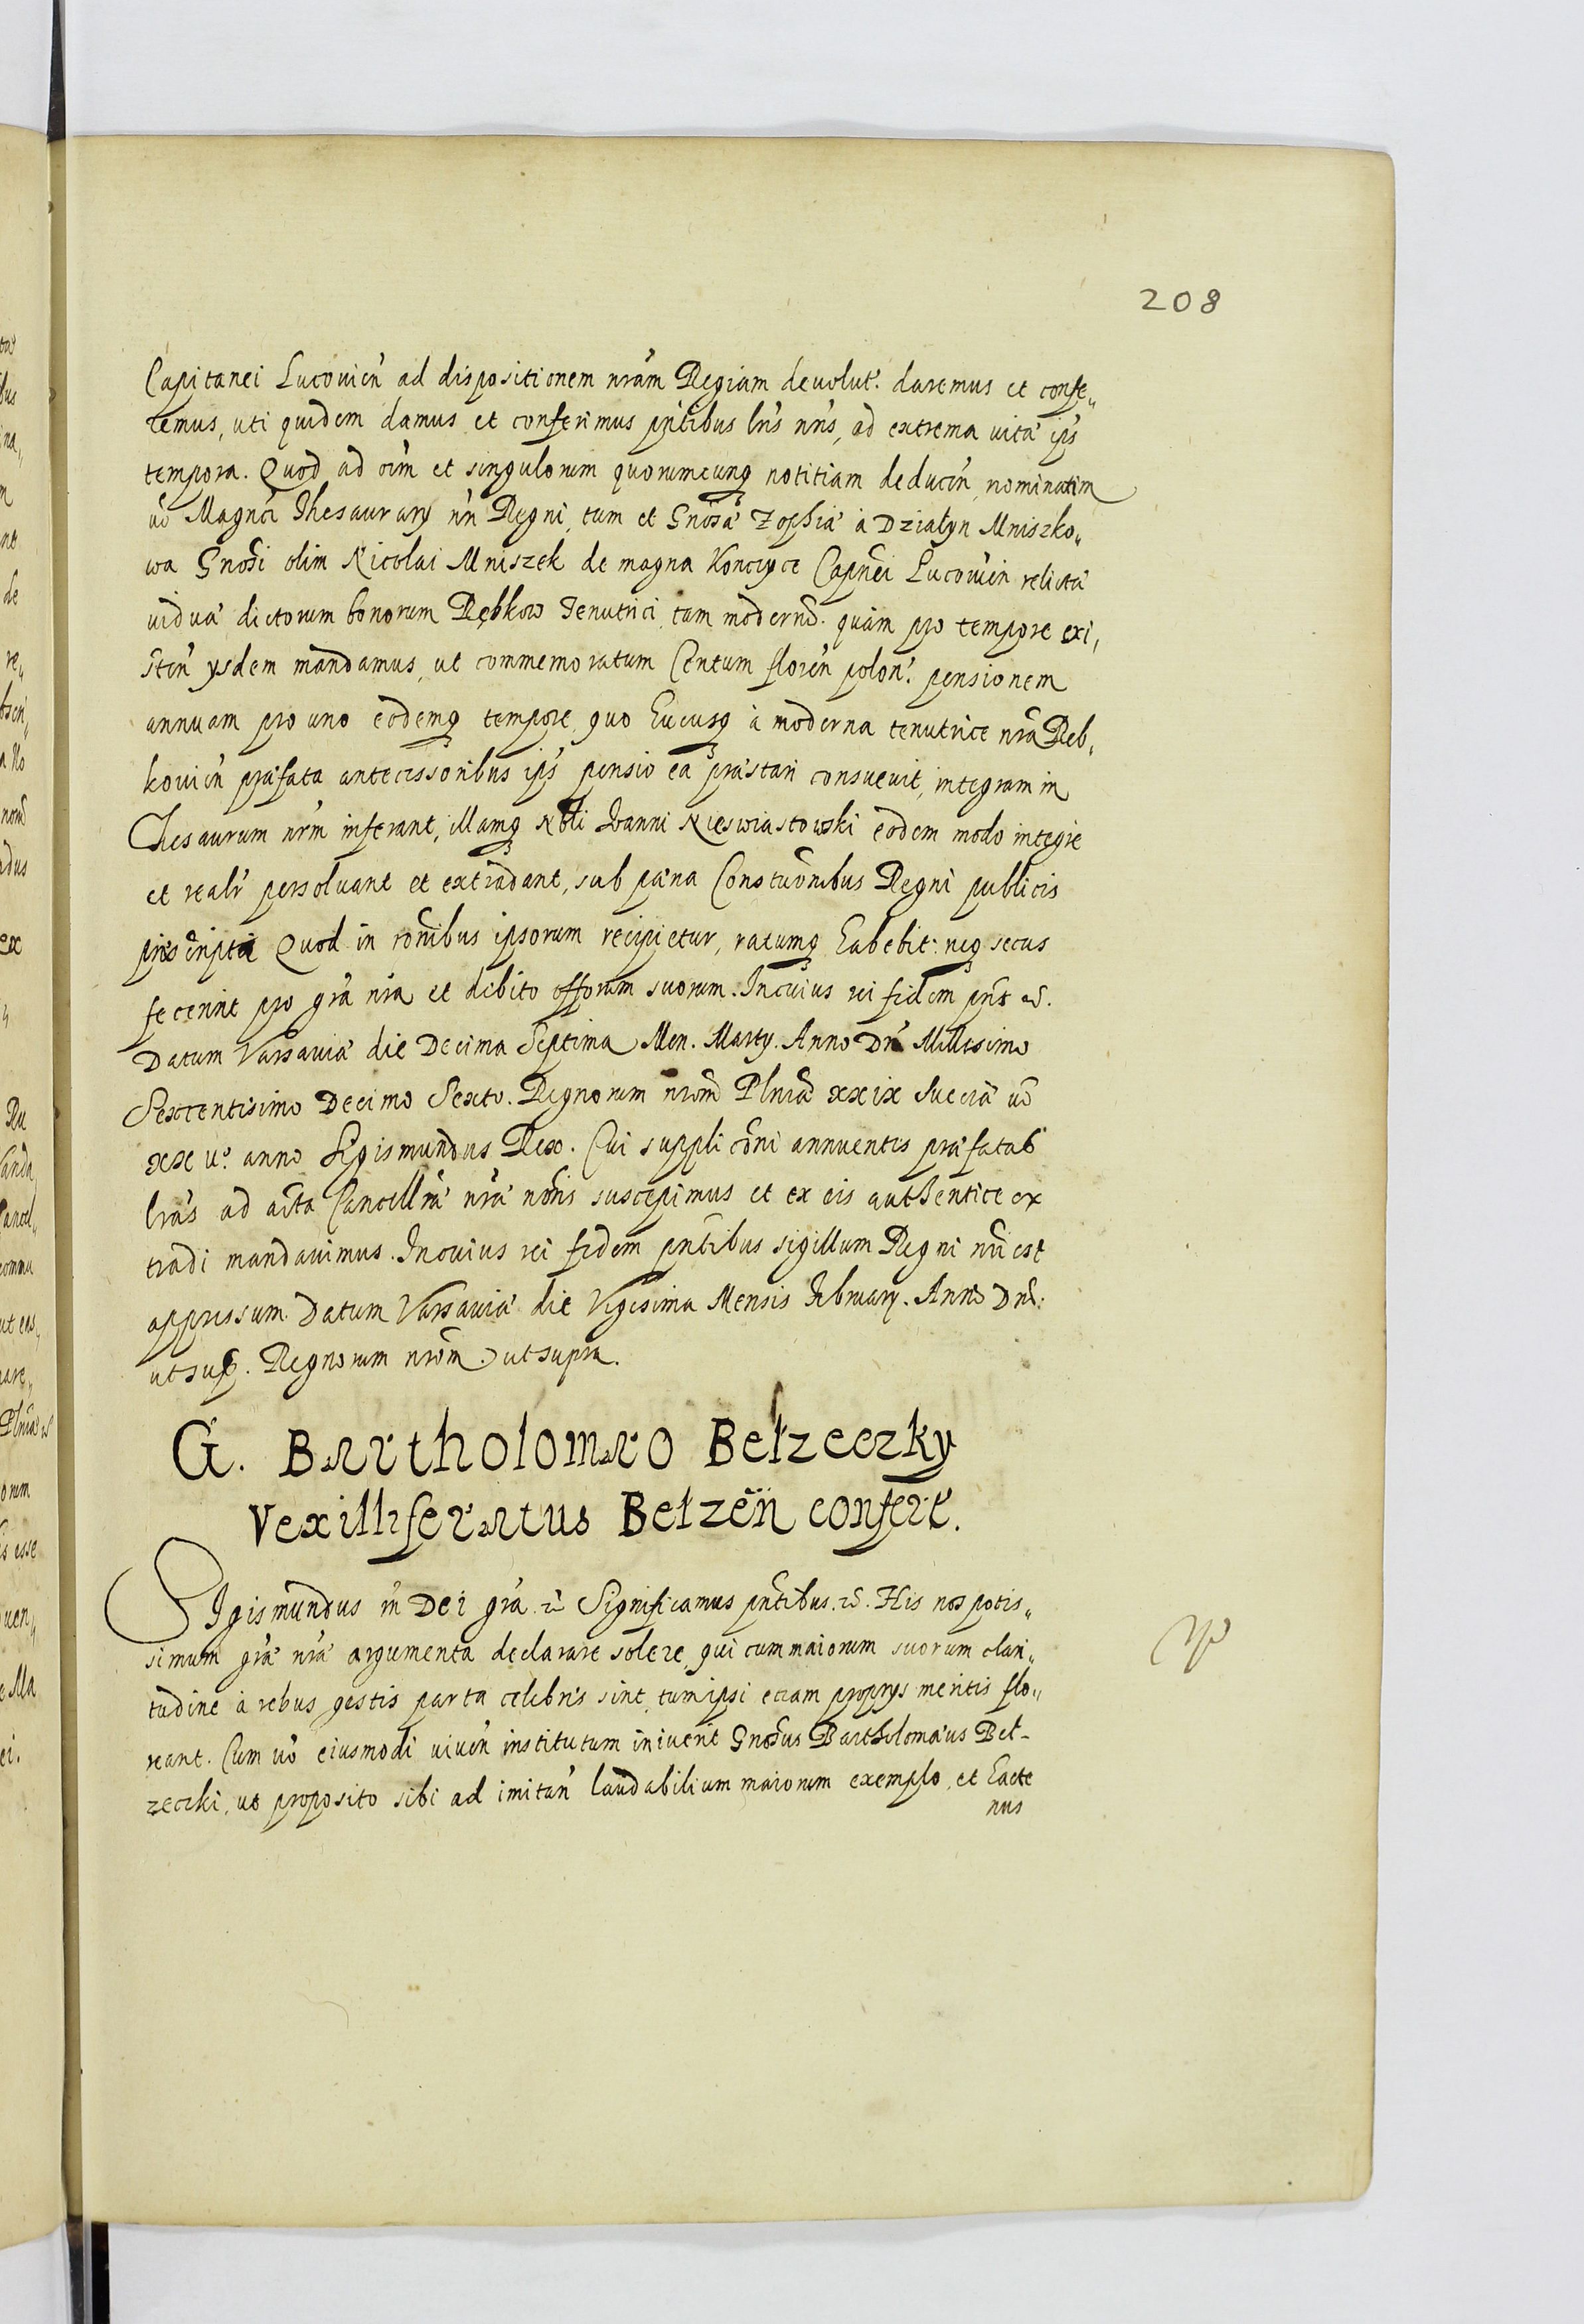 208
Capitanei Lucouien̄ ad dispositionem nrām Regiam deuolut. daremus et confe„
remus, uti quidem damus et conferimus pn̄tibus lris nr̄is, ad extrema uitæ ips̄
tempora. Quod ad oīm et singulorum quorumcunq̨ notitiam deducēn, nominatim
uō Magn̄ci Thesaurarij nr̄i Regni, tum et Gnosæ Zophiæ à Działyn Mniszko„
wa Gnosi olim Nicolai Mniszek de magna Konczyce Capnei Lucouien̄ relictæ
uiduæ dictorum bonorum Rębkow Tenutrici tam modernæ. quàm pro tempore exi„
sten̄ ysdem mandamus, ut commemoratum Centum floren̄ polon. pensionem
annuam pro uno eodemq̨ tempore quo hucusq̨ à moderna tenutrice nrā Reb„
kouien̄ præfata antecessoribus ips̄ pensio ea præstari consueuit, integram in
Thesaurum nr̄m inferant, illamq̨ Nobli Joanni Nieswiastowski eodem modo integre
et realr̄ persoluant et extradant, sub pæna Constuōnibus Regni publicis
præscripta Quod in rōnibus ipsorum recipietur, ratumq̨ habebit: neq̨ secus
fecerint pro grā nrā et debito offorum suorum. In cuius rei fidem pn̄s etc̄.
Datum Varsauiæ die Decima Septima Men. Martij. Anno Dn̄i Millesimo
Sexcentisimo Decimo Sexto. Regnorum nrōm Plniæ xxix Sueciæ uō
xx uo. anno Sigismundus Rex. Cui supplicōni annuentes præfatas
lrās ad acta Cancellriæ nrǣ nrōnis suscepimus et ex eis authentice ex
tradi mandauimus. In cuius rei fidem pn̄tibus sigillum Regni nrī est
appressum. Datum Varsauiæ die Vigesima Mensis Februarij. Anno Dnī.
ut sup. Regnorum nrōm. ut supra.
G. Bartholomæo Bełzeczky
Vexilliferatus Bełzēn confert.
Sigismundus iii Dei grā etc̄ Significamus pn̄tibus. etc̄. His nos potis„
simum grǣ nrǣ argumenta declarare solere, qui cum maiorum suorum clari„
tudine à rebus gestis parta celebris sint, tum ipsi etiam proprys meritis flo„
reant. Cum uō eiusmodi uiuen̄ institutum iniuerit Gnosus Bartholomæus Beł-
zeczki, ut proposito sibi ad imitan̄ laudabilium maiorum exemplo, et hacte
nus